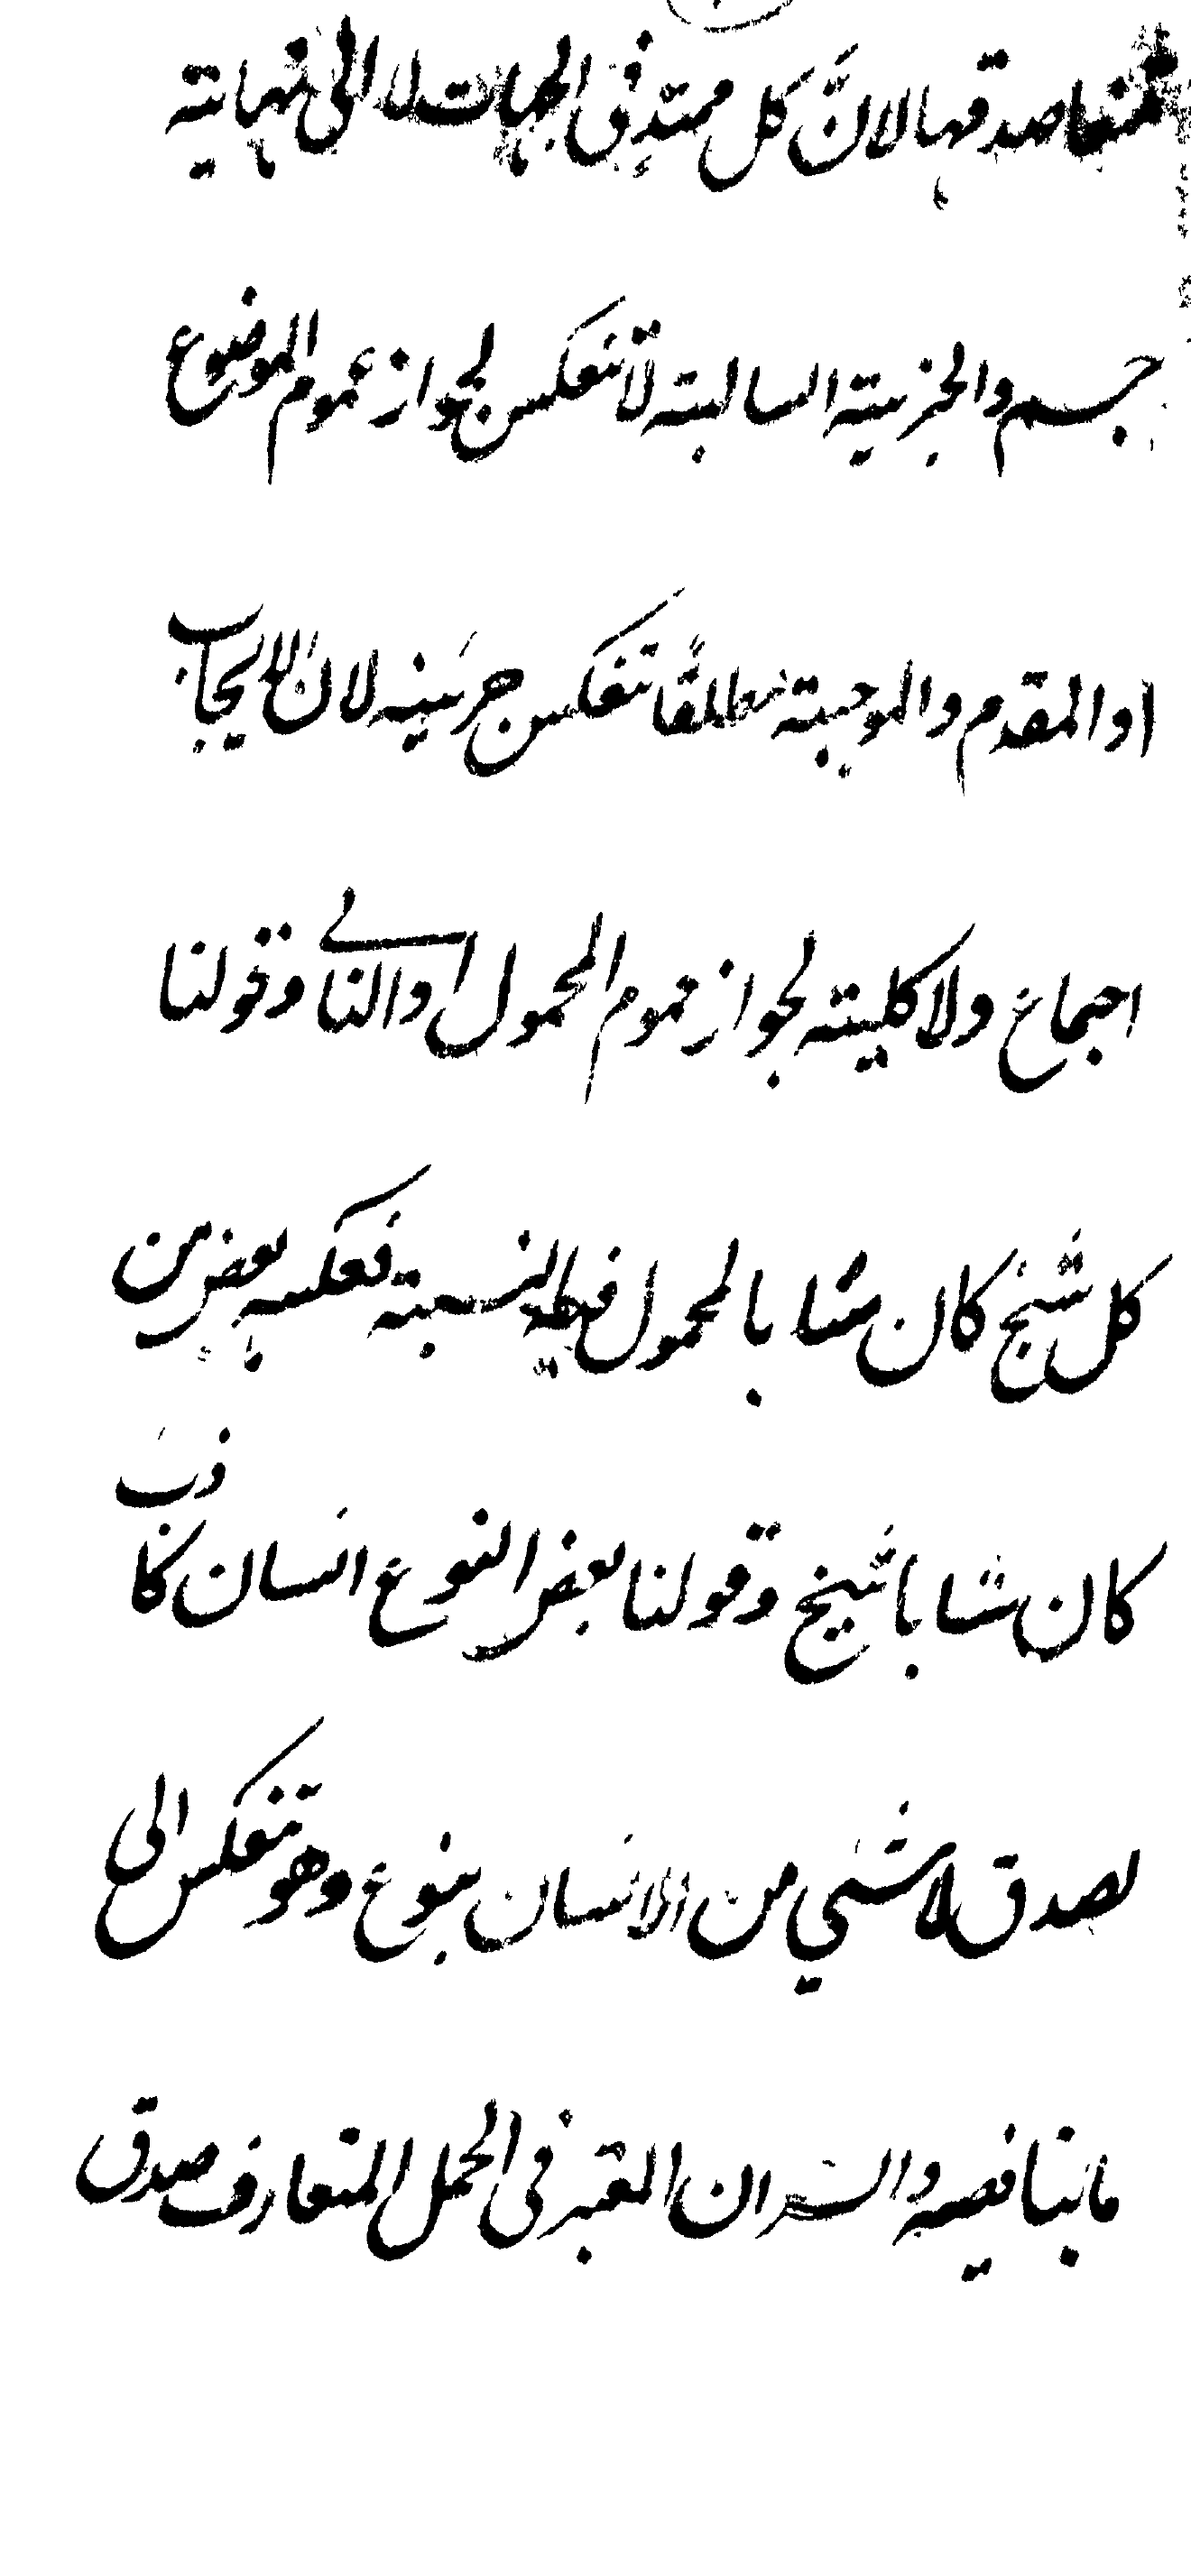 منعا صدقها لانّ كل ممتد في الجهات لا الى نهاية
جسم والجزئية السالبة لا تنعكس لجواز عموم الموضوع
او المقدم والموجبة مطلقًا تنعكس جزئية لان الايجاب
اجماع ولا كلية لجواز عموم المحمول او التالي وقولنا
كل شيخ كان شابا المحمول فيه النسبة فعكسه بعض من
كان شابا شيخ وقولنا بعض النوع انسان كاذب
لصدق لا شئي من الانسان بنوع وهو تنعكس الى
ما ينافيه والسر ان المعتبر في الحمل المتعارف صدق